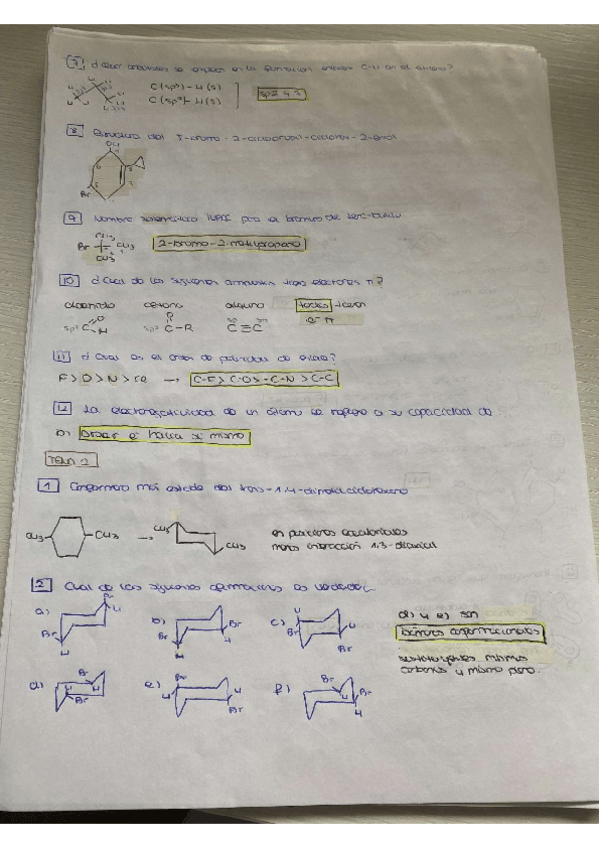 7 ¿Qué orbitales se emplean en la formación enlace C-H en el alqueno?
C(sp³) - H(s)
C(sp²) - H(s)
sp2 y s
8 Estructura del 5-bromo-2-ciclopropil-ciclohex-2-enol
OH
Br
9 Nombre sistemático IUPAC para el bromuro de terc-butilo
CH3
Br CH3
CH3
2-bromo-2-metilpropano
10 ¿Cuál de los siguientes compuestos tiene electrones π?
aldehído cetona alquino todos tienen
e⁻ π
sp² C=O H sp² C-R C≡C
11 ¿Cuál es el orden de polaridad de enlace?
F>O>N> → C-F> C-O> C-N > C-C
12 La electronegatividad de un átomo se refiere a su capacidad de
b) atraer e⁻ hacia sí mismo
TEMA 2
1 Confórmero más estable del trans-1,4-dimetilciclohexano
CH3 CH3 → CH3 CH3
en posiciones ecuatoriales
menos interacción 1,3-diaxial
2 Cual de las siguientes afirmaciones es verdadera
a) Br H Br H
b) Br H Br
c) H Br H Br
d) y e) son
isómeros conformacionales
sustituyentes mismos
carbonos y mismo
d) Br H Br H
e) Br H H Br
f) Br H Br H